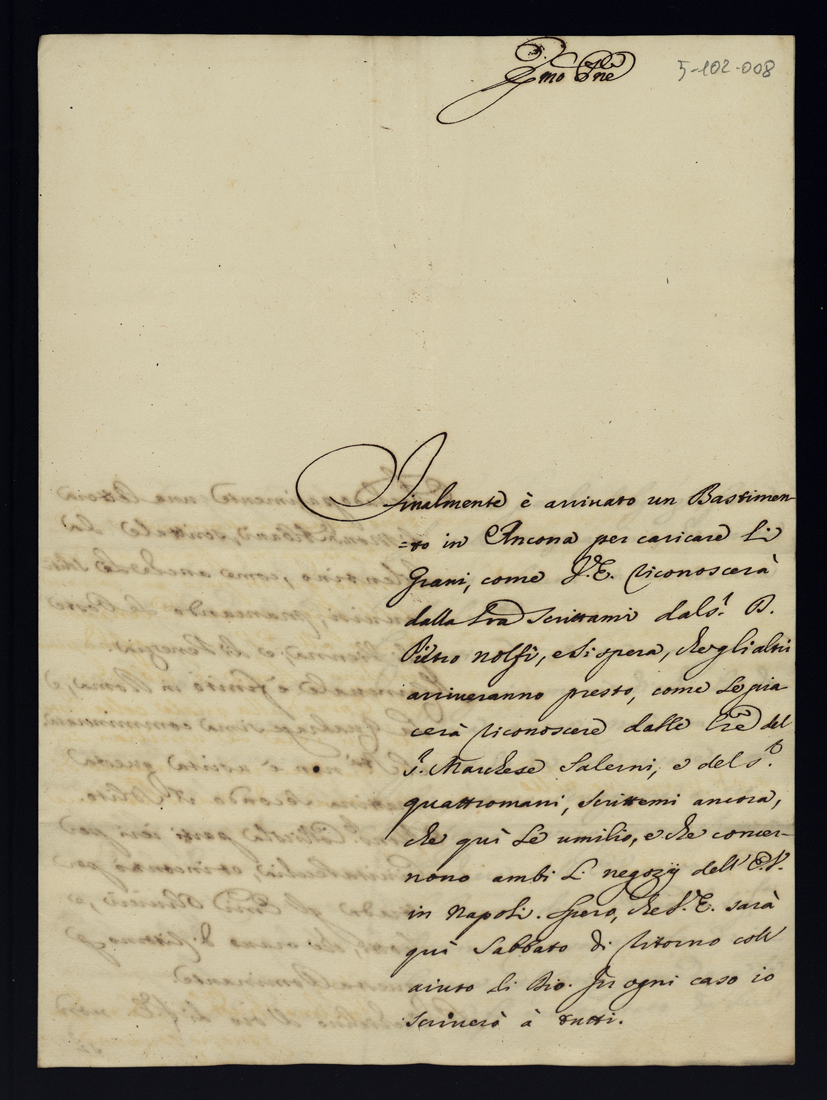 Emo Pne
5-102-008
Finalmente è arrivato un Bastimen-
=to in Ancona per caricare li
Grani, come V.E. riconoscerà
dalla Lra scrittami dal S.r D.
Pietro Nolfi, e si spera, che gli altri
arriveranno presto, come le pia
cerà riconoscere dalle Lre del
S. Marchese Salerni, e del S.r D.
Quattromani, scrittemi ancora,
che quì le umilio, e che concer-
nono ambi li negozÿ dell'E.V.
in Napoli. Spero, che V.E. sarà
quì Sabbato di ritorno coll'
aiuto di Dio. In ogni caso io
scriverò à tutti.